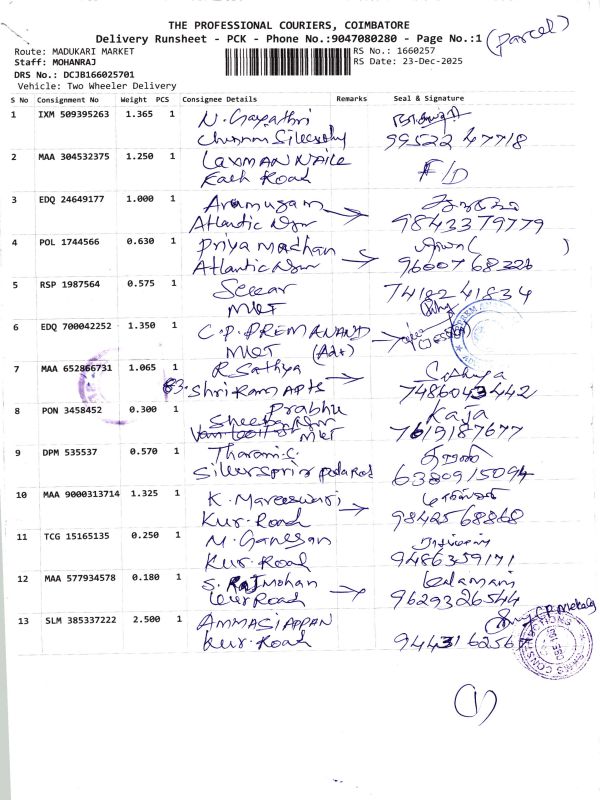 THE PROFESSIONAL COURIERS, COIMBATORE
Delivery Runsheet - PCK - Phone No.:9047080280 - Page No.:1
(Parcel)
Route: MADUKARI MARKET
RS No.: 1660257
Staff: MOHANRAJ
RS Date: 23-Dec-2025
DRS No.: DCJB166025701
Vehicle: Two Wheeler Delivery
S No Consignment No Weight PCS Consignee Details Remarks Seal & Signature
1 IXM 509395263 1.365 1 N. Gayathri
99522 47718
2 MAA 304532375 1.250 1 LAXMAN NAILE F/D
Road
3 EDQ 24649177 1.000 1 Arumugam
Atlantic 98433 79779
4 POL 1744566 0.630 1 Priya Madhan
Atlantic 96007 68326
5 RSP 1987564 0.575 1 74182 41834
MKT
6 EDQ 700042252 1.350 1 C.P. PREMANAND
MKT
7 MAA 652866731 1.065 1 R. Sathya Sathya
63. Shri Ram Apts 7486043442
8 PON 3458452 0.300 1 Prabhu Raja
MKT 7619187677
9 DPM 535537 0.570 1 Tharani.C
Silver Spring 6380915094
10 MAA 9000313714 1.325 1 K. Mareeswari
Kur. Road 9842568868
11 TCG 15165135 0.250 1 M. Ganesan
Kur. Road 9486359171
12 MAA 577934578 0.180 1 S. Raj Mohan Kalamani
Kur Road 9629326544
13 SLM 385337222 2.500 1 AMMASIAPPAN
Kur. Road 944316256
(1)